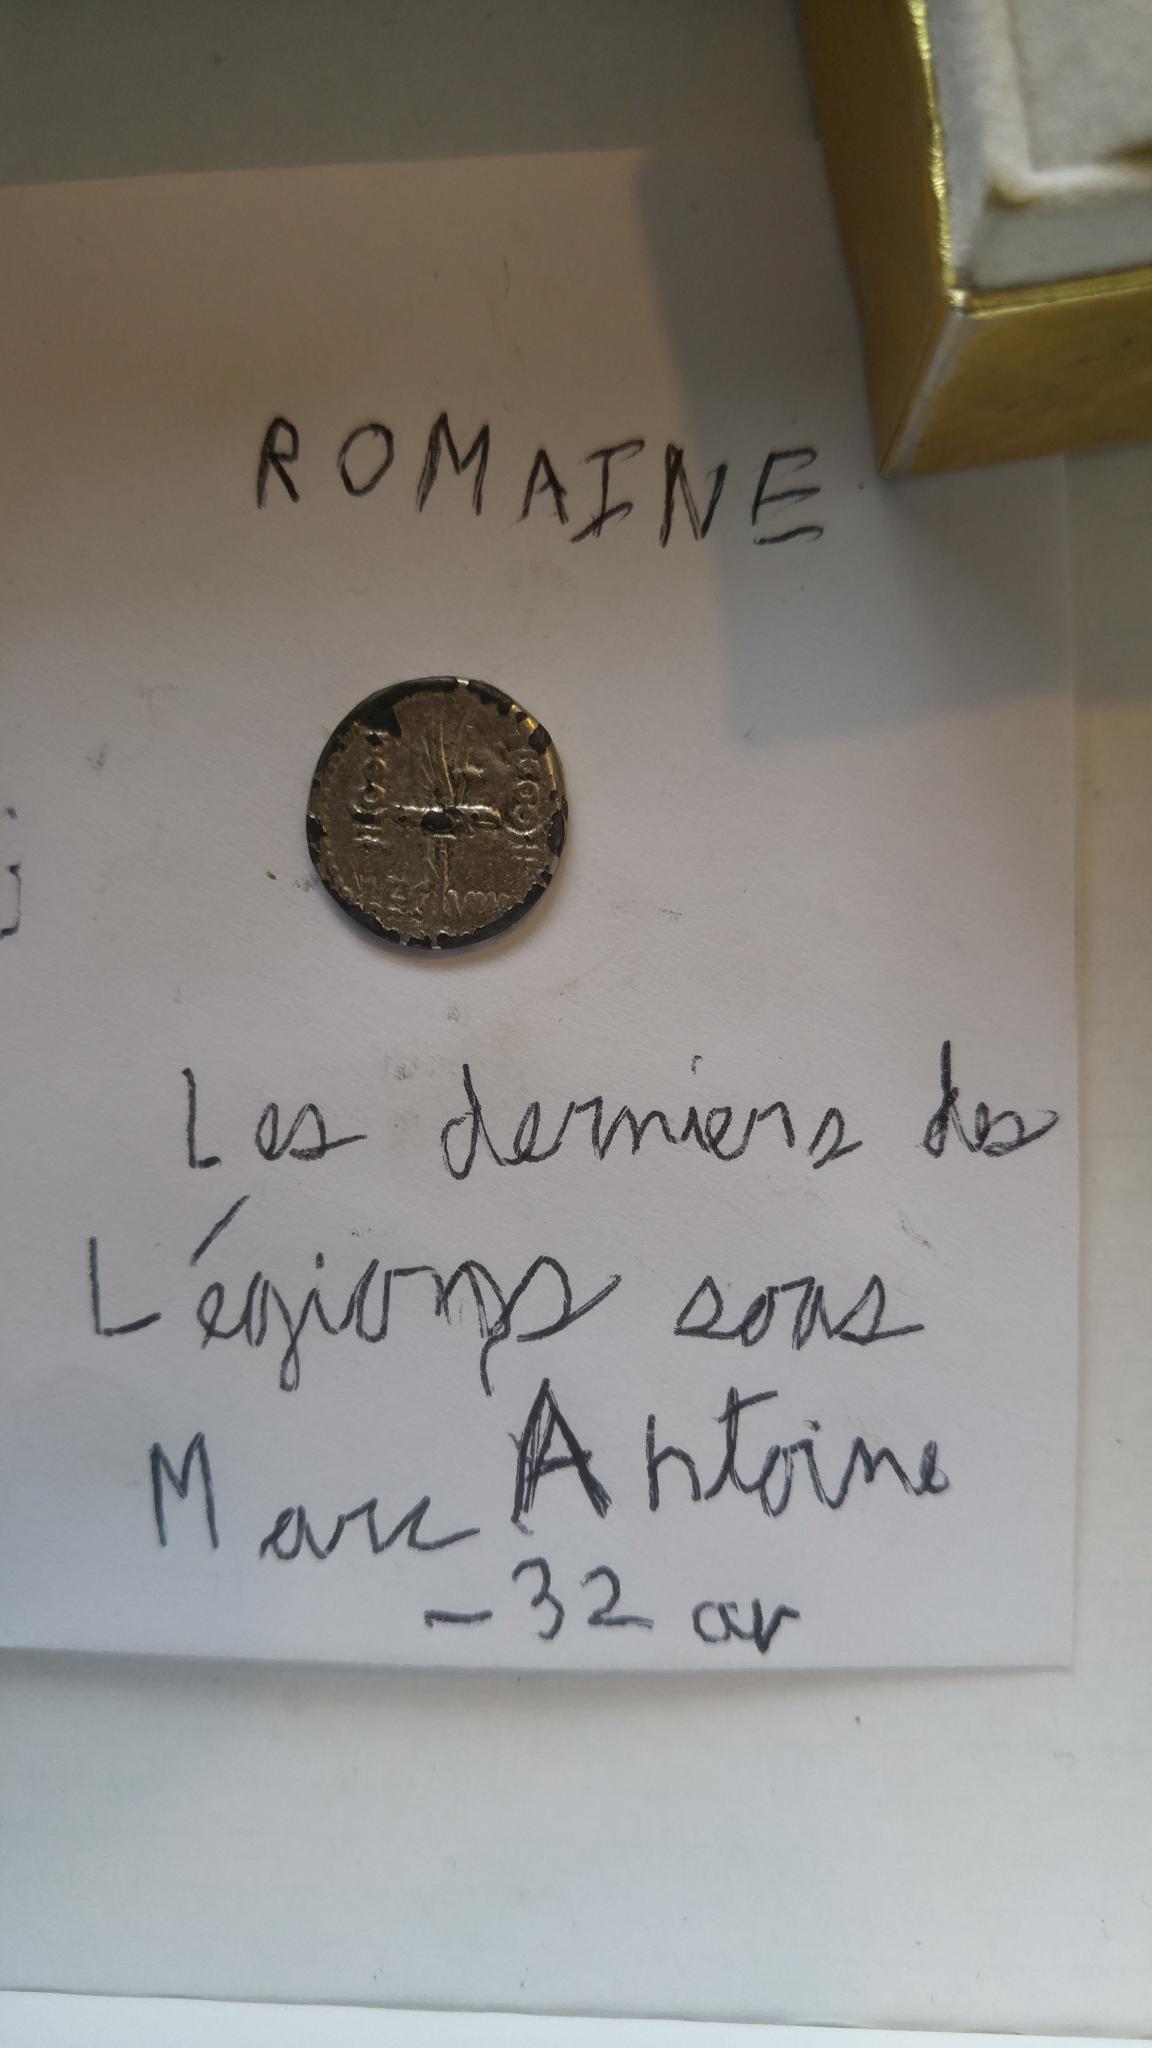 ROMAINE
Les derniers des
Légions sous
Marc Antoine
-32 av